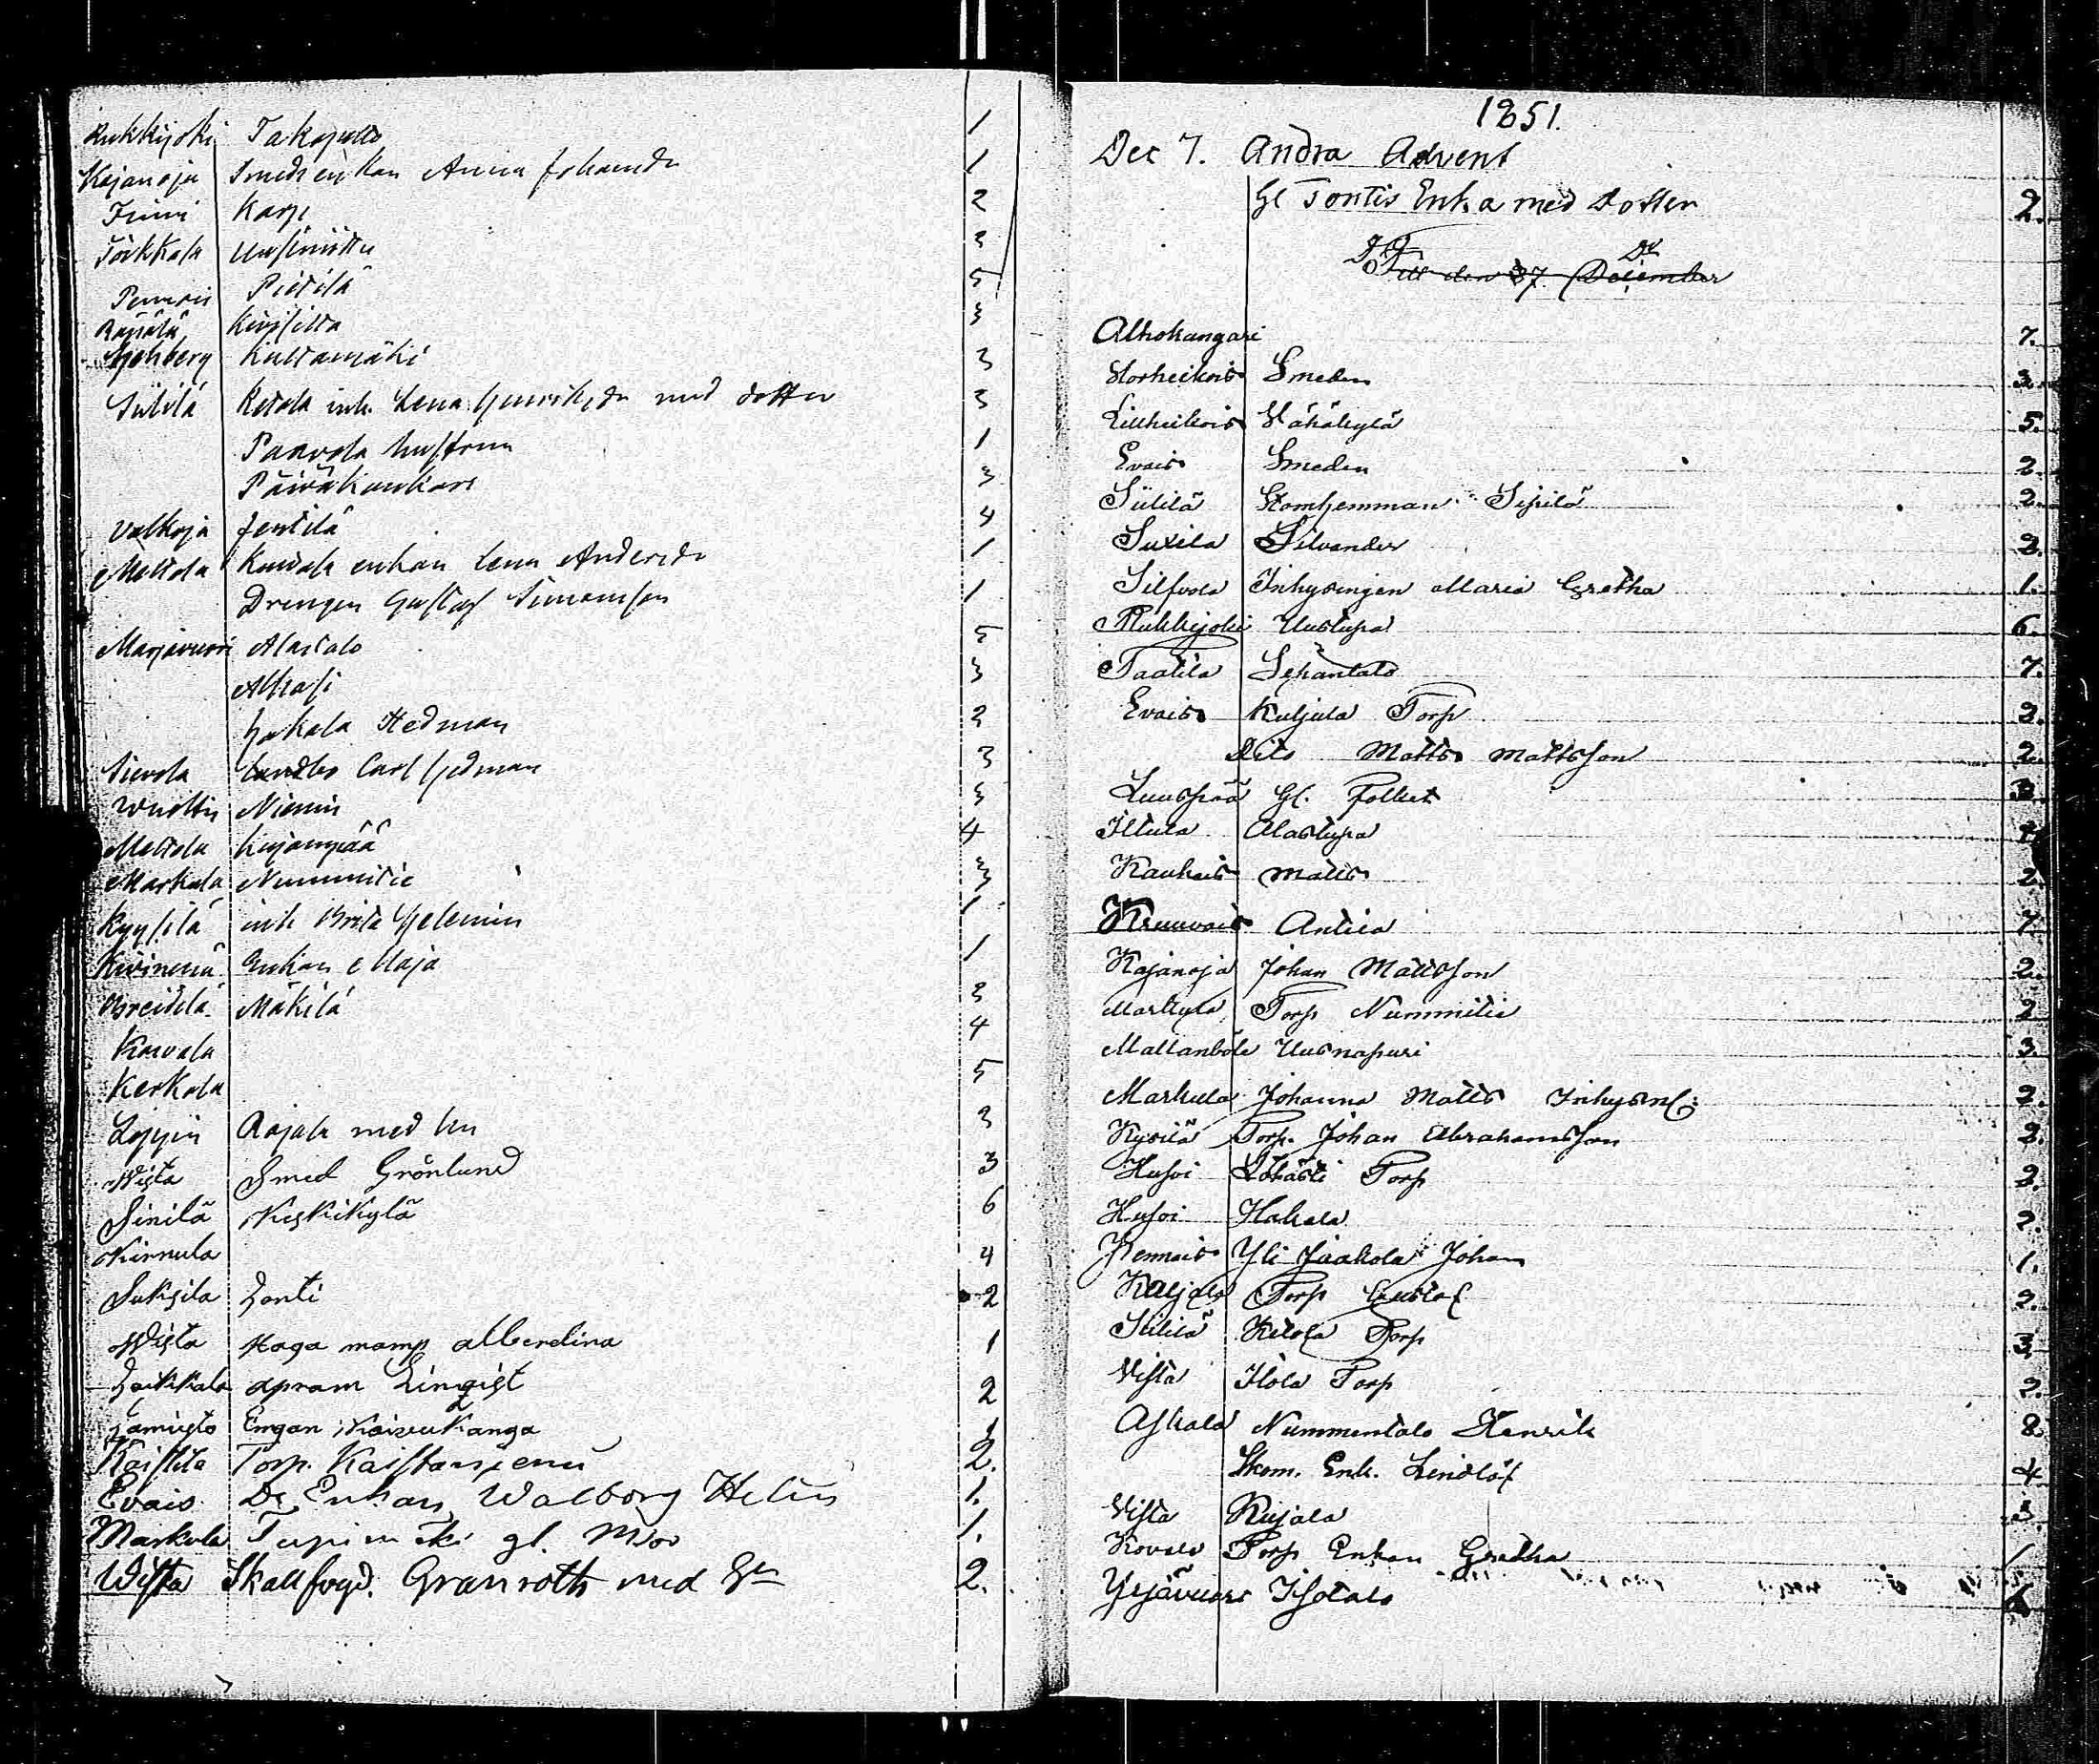 Rukkijoki Takapelto 1
Kojanoja Smedsenkan Anna Johansdr 1
Karp 2
Törkkala Uusiniittu 3
Pietilä 5
Räpälä Kivisilta 3
Sjöhberg Kultamäki 3
Siililä Ketola inh. Lena Henriksdr med dotter 3
Paavola hustrun 1
Päiväkankare 3
Valkoja Jentilä 4
Mattola enkan Lena Andersdr 1
Drengen Gustaf Simonsson 1
Marjavuori Alastalo 5
Alhasi 3
Hakala Hedman 2
Sievola Carl Hedman 3
Wuoltis Niemis 3
Mattola Kujanpää 4
Markula Nummitie 3
Kyysilä inh Brita Helenius 1
Kivinenä Enkan Maja 1
Breidilä Mäkilä 3
Kowala 4
Kerkola 5
Loppin Rajala med hu 3
Wista Smed Grönlund 3
Sinilä Keskikylä 6
Kirnula 4
Suksila Honti 2
Wista Haga mamp alberdina 1
apram Linqist 2
Engan Koivukanga 1
Kaistila Torp. Kaistarijenu 2.
Evais De Enkan Walborg Helin 1.
Markula gl. Mor 1.
Wista Skallfogd. Granroth med Hu 2.
1851.
Dec 7. Andra Advent
Gl Tontis Enka med Dotter 2.
Till den 7. December
Alhokangari 7.
Storheikois Smeden 3.
Lillheikois Vähäkylä 5.
Evais Smeden 2.
Siililä Stomhemman Sipilä 2.
Suxila Silvander 2.
Silfvola Inhysingen Maria Gretha 1.
Rukkijoki Uustupa 6.
Taatila Sepäntalo 7.
Evais Kuljula Torp 2.
Dito Matts Mattsson 2.
Luuspää Gl. Folket 3.
Illula Alastupa
Kauhais Matts 2
Kruuvais Antila 7.
Kajanoja Johan Mattsson 2.
Markula Torp Nummitie 2
Mattanböle Uusnapuri 3.
Markula Johanna Matts Inhysnl: 2.
Kysilä Torp. Johan Abrahamsson 2.
Husoi Torp 2.
Husoi Hakala 2.
Hennais Yli Jaakola Johan 1.
Kaljala Torp Gustaf 2.
Siililä Ketola Torp 3.
Vista Ilola Torp 2.
Askala Nummentalo Henrik 8.
Skom. Enk. Lindlöf 4
Vista Kujala 3.
Kovala Torp Enkan Gretha 1
Yljävuori Isotalo